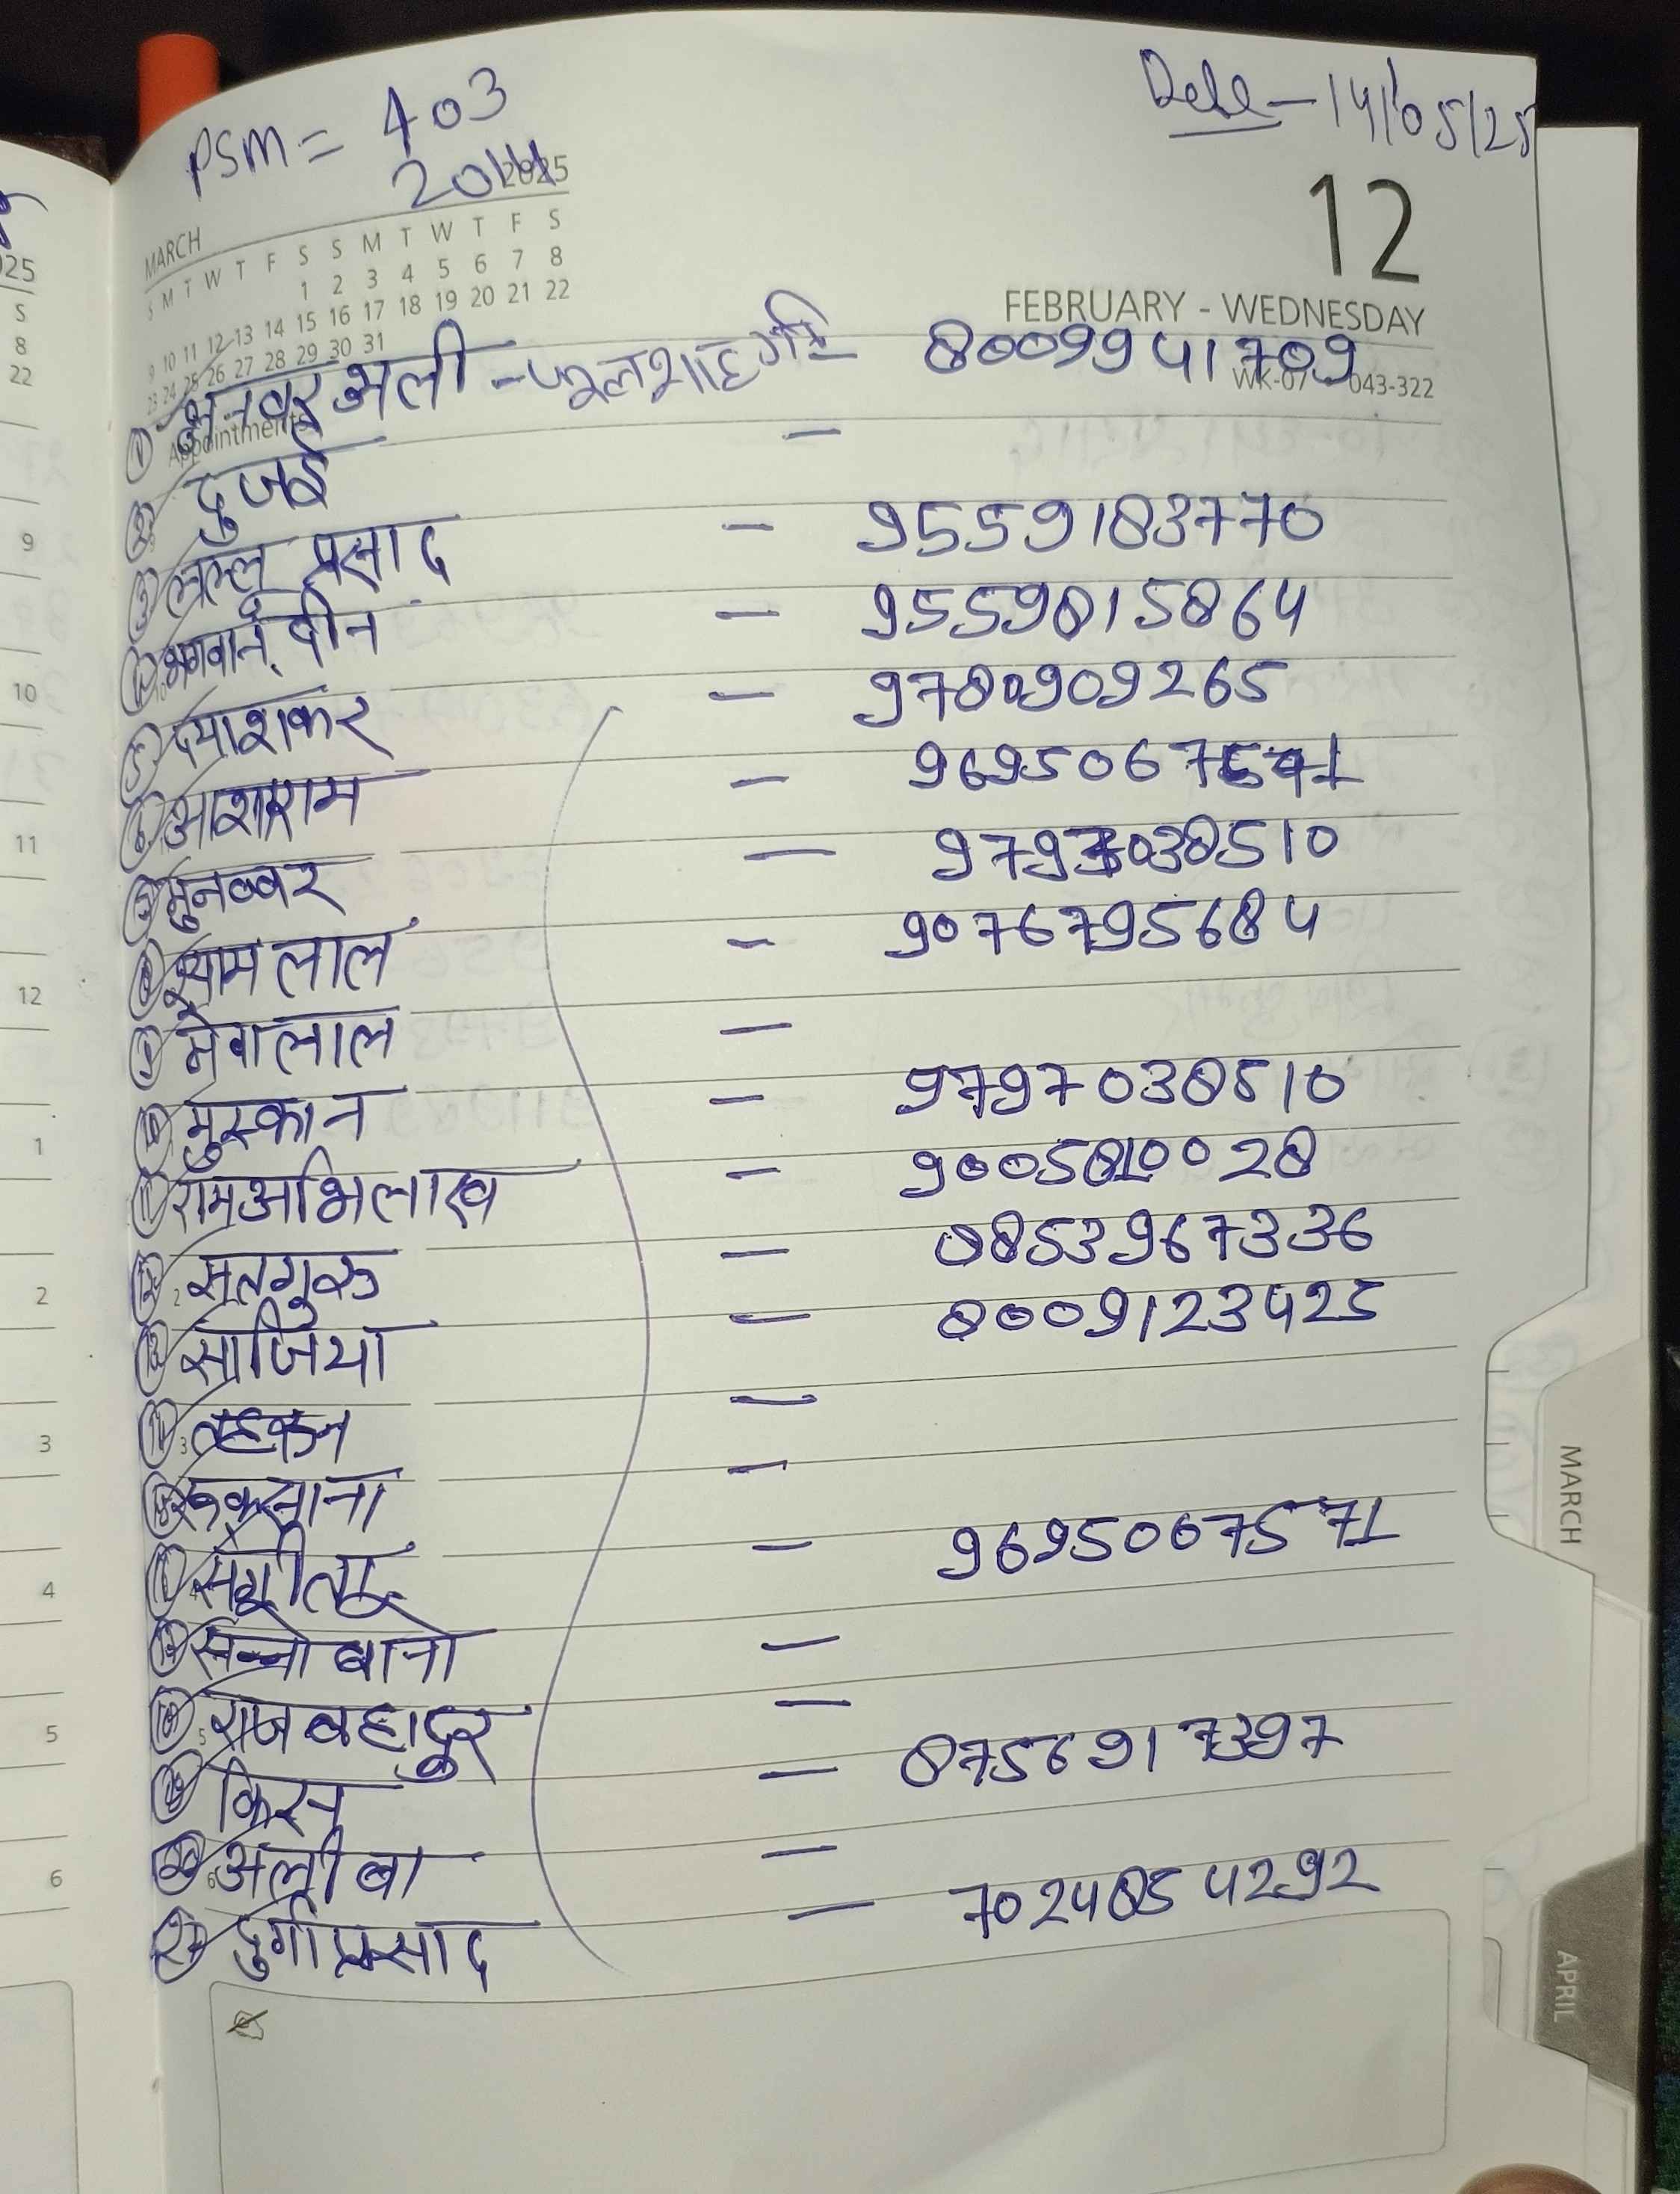 PSM = 403
Date - 14/05/25
2025
12
MARCH
S M T W T F S S M T W T F S
1 2 3 4 5 6 7 8
9 10 11 12 13 14 15 16 17 18 19 20 21 22
23 24 25 26 27 28 29 30 31
FEBRUARY - WEDNESDAY
WK-07 043-322
Appointments
① अनवर अली - फूलशाह 8009941709
② दुजई -
③ लल्लू प्रसाद - 9559183770
④ भगवान दीन - 9559815864
⑤ दयाशंकर - 9780909265
⑥ आशाराम -
⑦ मुनव्वर -
⑧ श्याम लाल - 9076795684
⑨ मेवालाल -
⑩ मुस्कान - 9797038510
⑪ रामअभिलाख -
⑫ सतगुरु - 8853967336
⑬ साजिया - 8009123425
⑭ -
⑮ रुकसाना -
⑯ संगीता - 9695067571
⑰ बानो -
⑱ राजबहादुर -
⑲ किस्म - 8756917397
⑳ अलीबा -
㉑ दुर्गा प्रसाद - 7024854292
25
S
8
22
9
10
11
12
1
2
3
4
5
6
MARCH
APRIL